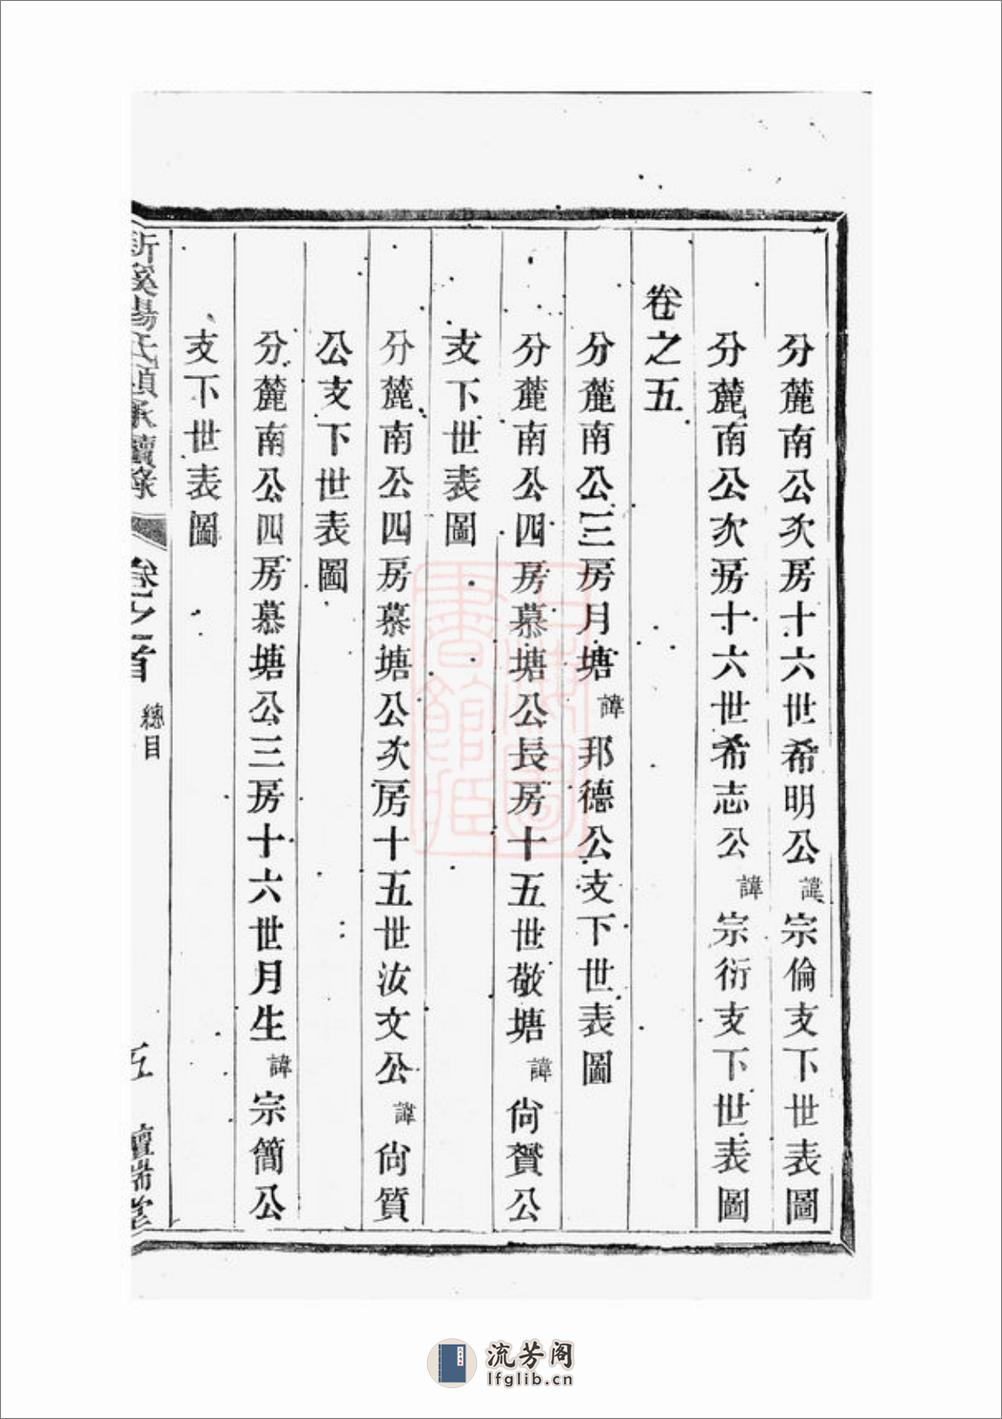 分麓南公次房十六世希明公諱宗倫支下世表圖
分麓南公次房十六世希志公諱宗衍支下世表圖
卷之五
分麓南公三房月塘諱邦德公支下世表圖
分麓南公四房慕塘公長房十五世敬塘諱尙賢公
支下世表圖
分麓南公四房慕塘公次房十五世汝文公諱尙質
公支下世表圖
分麓南公四房慕塘公三房十六世月生諱宗簡公
支下世表圖
卷之首
總目
五
流芳阁
lfglib.cn